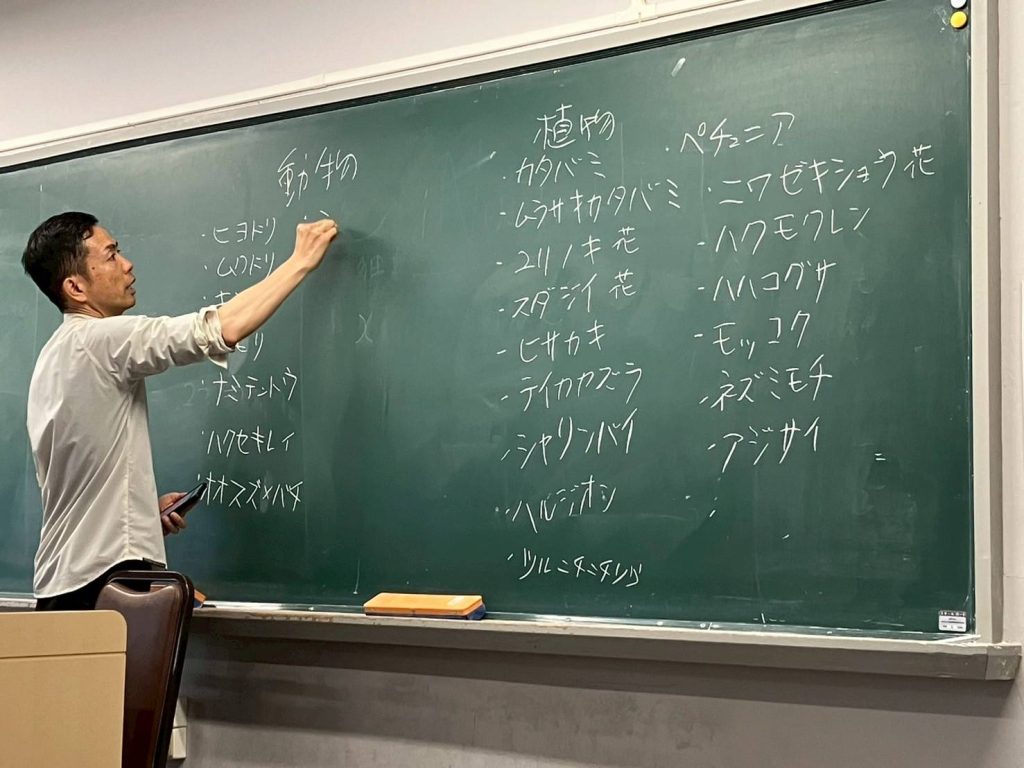 動物
・ヒヨドリ
・ムクドリ
モリ
・ナミテントウ
・ハクセキレイ
・オオスズメバチ
植物
・カタバミ
・ムラサキカタバミ
・ユリノキ 花
・スダジイ 花
・ヒサカキ
・テイカカズラ
・シャリンバイ
・ハルジオン
・ペチュニア
・ニワゼキショウ花
・ハクモクレン
・ハハコグサ
・モッコク
・ネズミモチ
・アジサイ